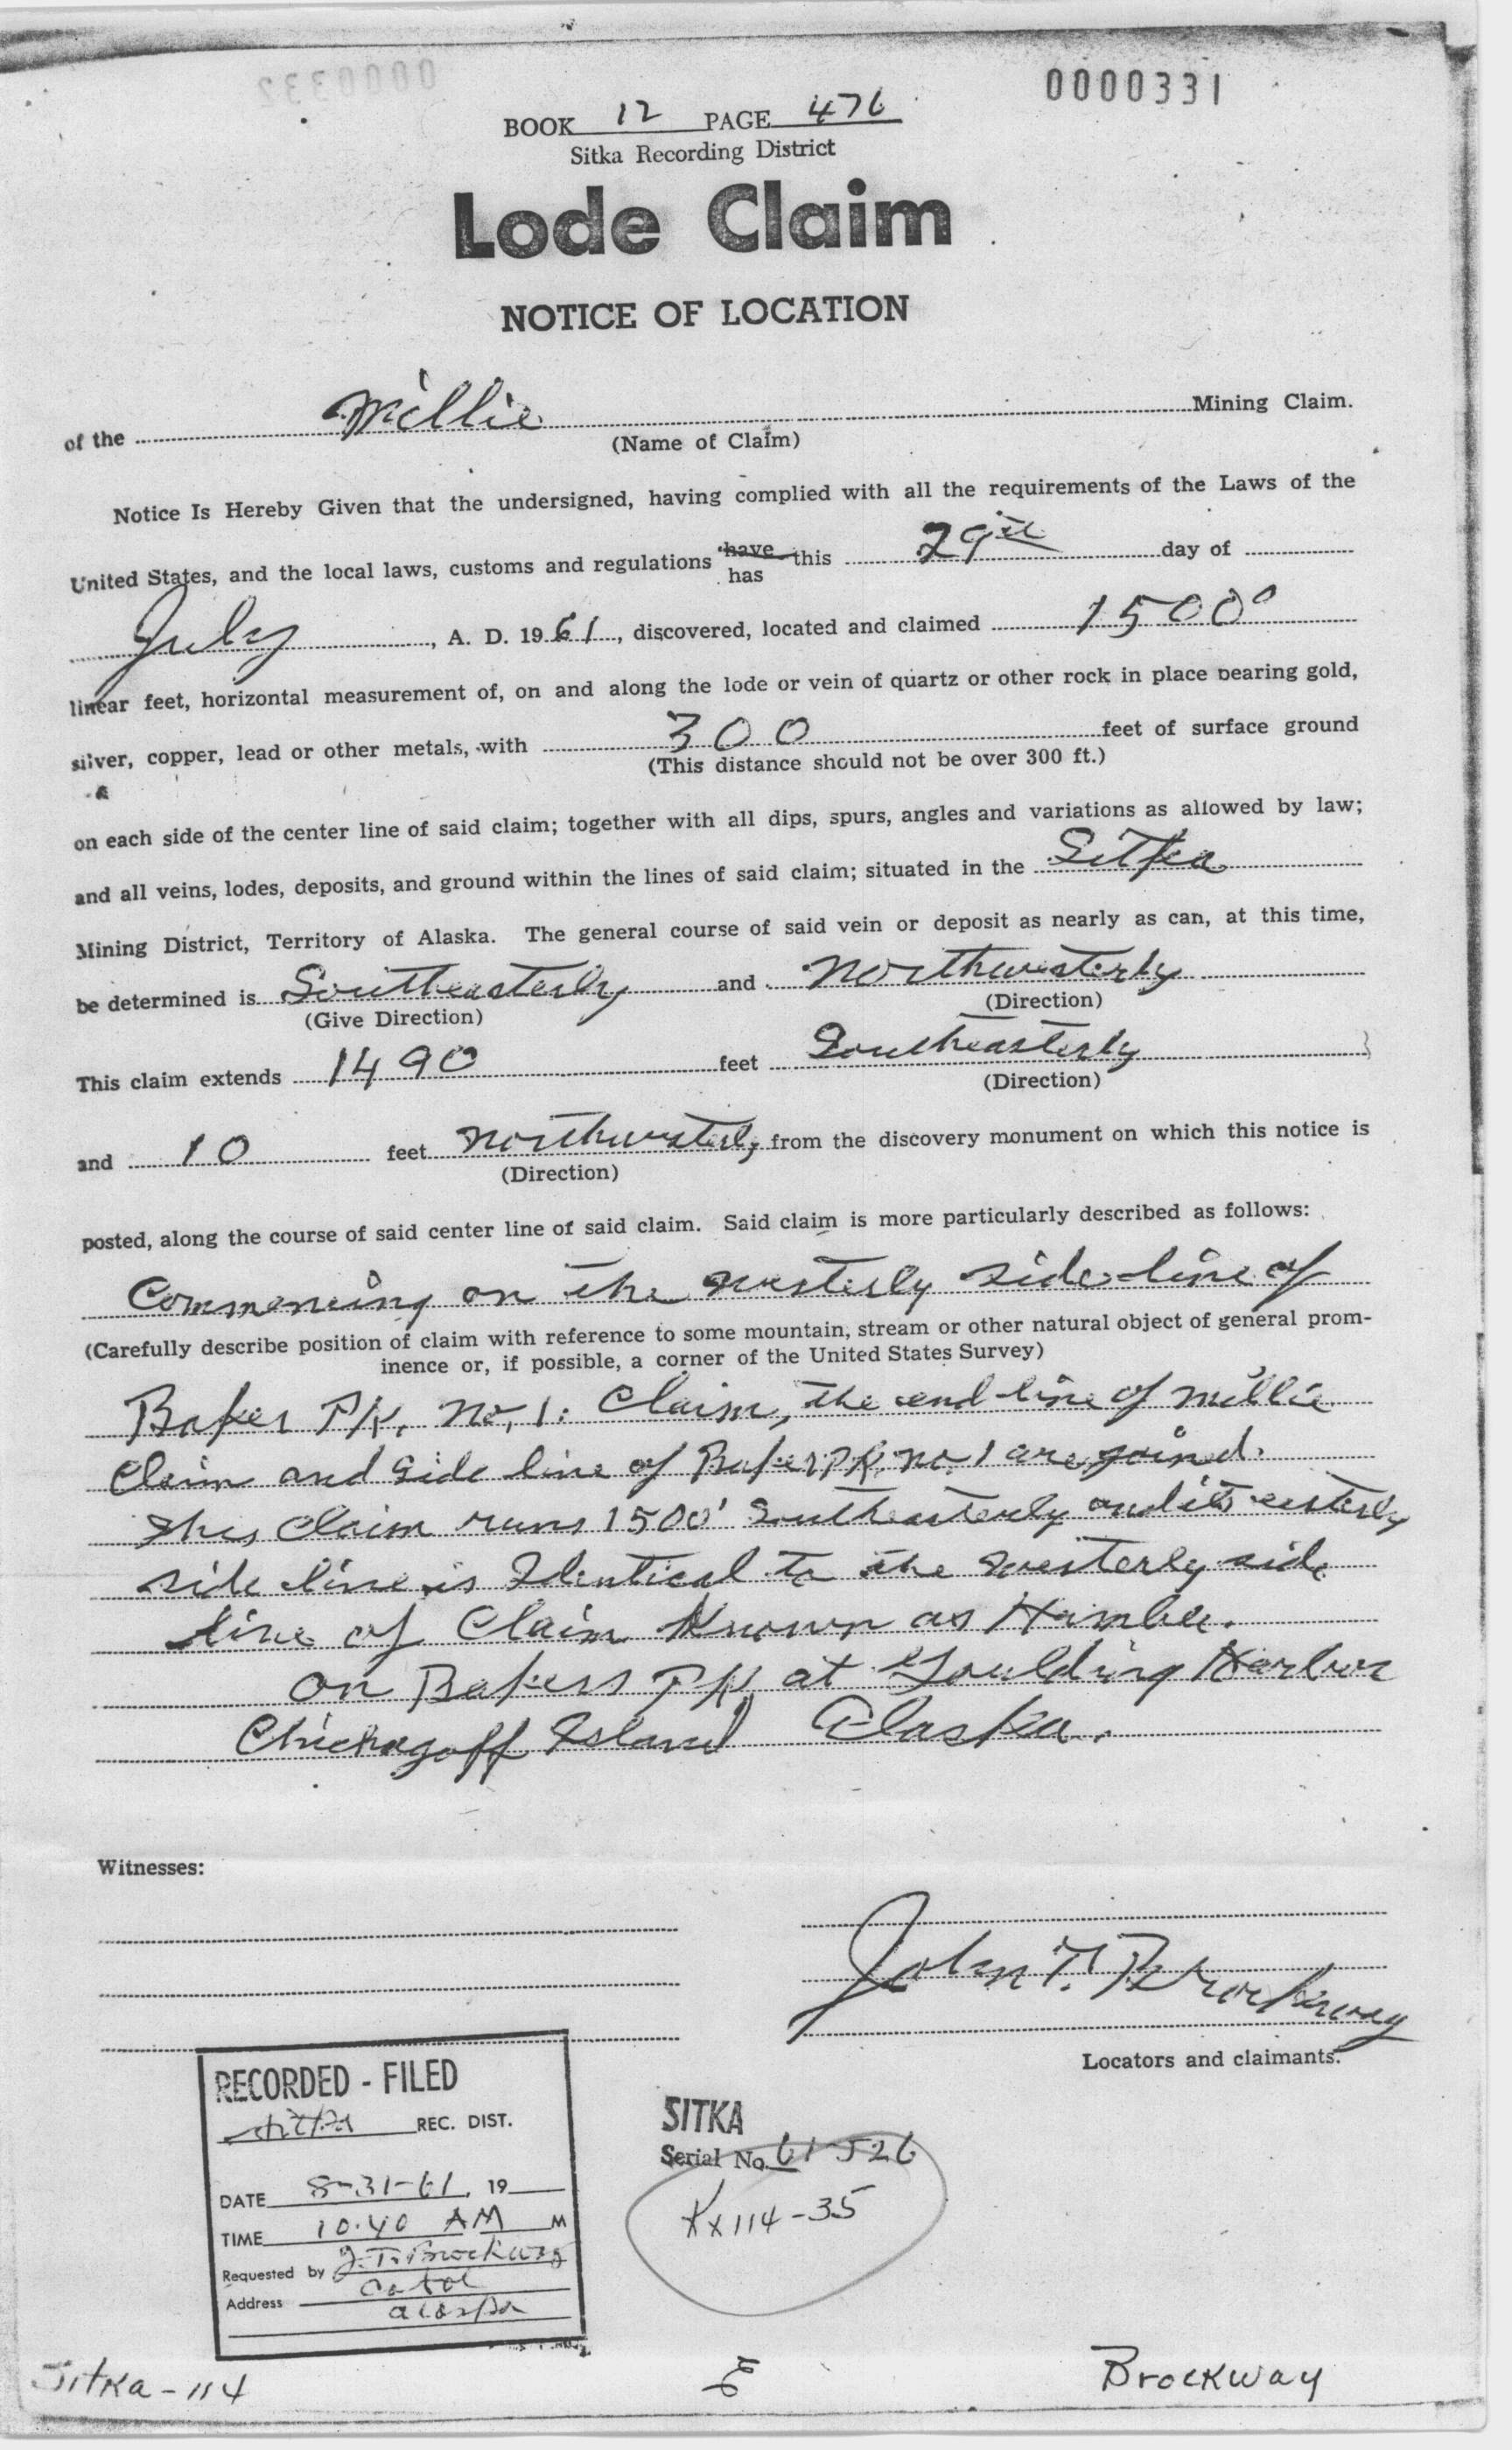 0000332
0000331
BOOK 12 PAGE 476
Sitka Recording District
Lode Claim
NOTICE OF LOCATION
of the Millie Mining Claim.
(Name of Claim)
Notice Is Hereby Given that the undersigned, having complied with all the requirements of the Laws of the
United States, and the local laws, customs and regulations have has this 29th day of
July, A. D. 1961, discovered, located and claimed 1500
linear feet, horizontal measurement of, on and along the lode or vein of quartz or other rock in place bearing gold,
silver, copper, lead or other metals, with 300 feet of surface ground
(This distance should not be over 300 ft.)
on each side of the center line of said claim; together with all dips, spurs, angles and variations as allowed by law;
and all veins, lodes, deposits, and ground within the lines of said claim; situated in the Sitka
Mining District, Territory of Alaska. The general course of said vein or deposit as nearly as can, at this time,
be determined is Southeasterly and Northwesterly
(Give Direction) (Direction)
This claim extends 1490 feet Southeasterly
(Direction)
and 10 feet Northwesterly from the discovery monument on which this notice is
(Direction)
posted, along the course of said center line of said claim. Said claim is more particularly described as follows:
Commencing on the westerly side line of
(Carefully describe position of claim with reference to some mountain, stream or other natural object of general prom-
inence or, if possible, a corner of the United States Survey)
Baker PK. No. 1. Claim, the end line of Millie
Claim and side line of Baker PK. No. 1 are joined.
This Claim runs 1500' Southeasterly and its easterly
side line is Identical to the westerly side
line of Claim Known as
On Bakers PK at Goulding Harbor
Chichagoff Island Alaska.
Witnesses:
John T. Brockway
Locators and claimants.
RECORDED - FILED
Sitka REC. DIST.
DATE 8-31-61, 19
TIME 10:40 AM M
Requested by J. T. Brockway
Address
Alaska
SITKA
Serial No. 61-526
Kx 114-35
Sitka-114
Brockway